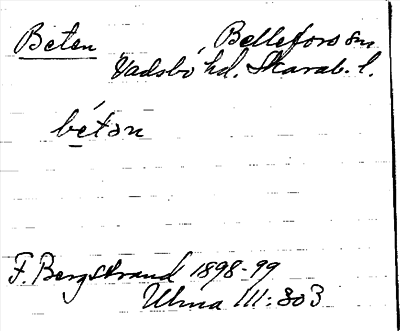 Beten Bellefors sn
Vadsbo hd. Skarab. l.
be̠´tən
F. Bergstrand 1898-99
Ulma 111:303